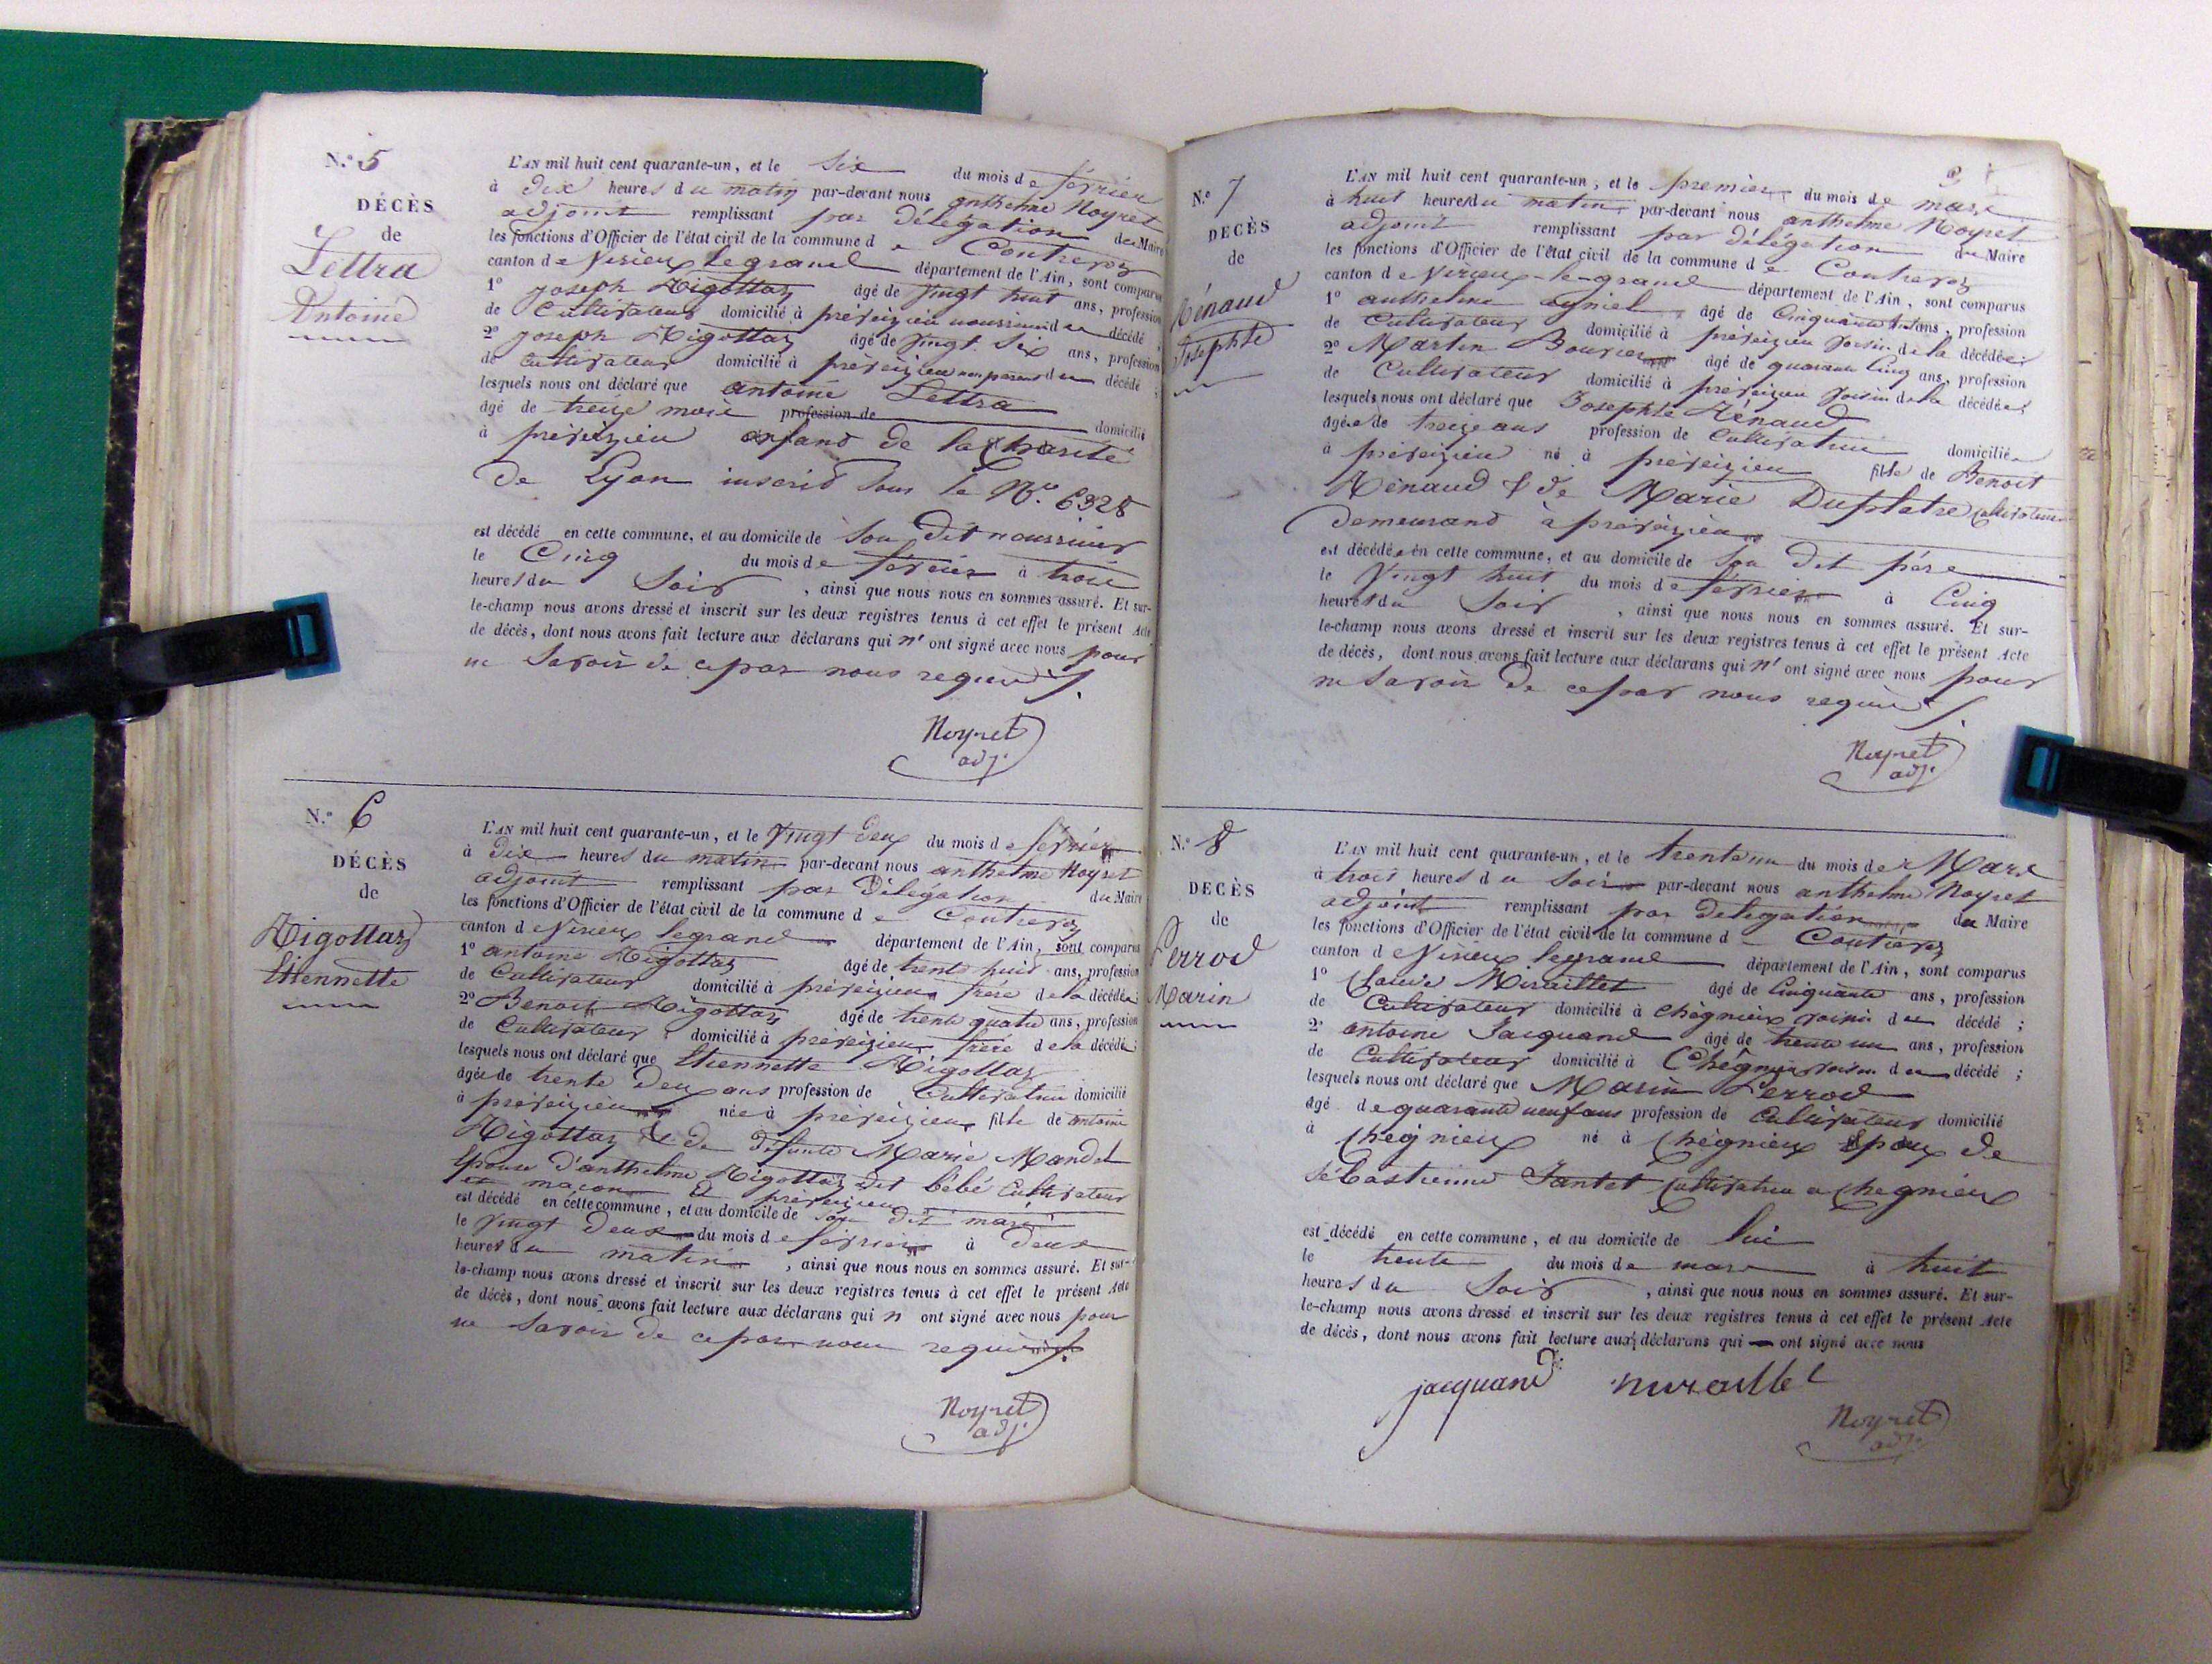 N.° 5
DÉCÈS
de
Lettra
Antoine
L'AN mil huit cent quarante-un, et le six du mois de février
à dix heures du matin par-devant nous anthelme Noyret
adjoint remplissant par Délégation du Maire
les fonctions d'Officier de l'état civil de la commune de Contrevoz
canton de Virieux legrand département de l'Ain, sont comparus
1° joseph Rigottaz âgé de vingt huit ans, profession
de Cultivateur domicilié à préveizieu nourricier du décédé ;
2° joseph Rigottaz âgé de vingt six ans, profession
de cultivateur domicilié à préveizieu non parent du décédé ;
lesquels nous ont déclaré que antoine Lettra
âgé de treize mois profession de domicilié
à préveizieu enfand de la Charité
de Lyon inscrid sous le N.° 6328
est décédé en cette commune, et au domicile de son Dit nourricier
le Cinq du mois de février à trois
heures du Soir , ainsi que nous nous en sommes assuré. Et sur-
le-champ nous avons dressé et inscrit sur les deux registres tenus à cet effet le présent Acte
de décès, dont nous avons fait lecture aux déclarans qui n' ont signé avec nous pour
ne Savoir de ce par nous requis
Noyret
adj.
N.° 6
DÉCÈS
de
Rigottaz
Etiennette
L'AN mil huit cent quarante-un, et le vingt deux du mois de février
à dix heures du matin par-devant nous anthelme Noyret
adjoint remplissant par Délégation du Maire
les fonctions d'Officier de l'état civil de la commune de Contrevoz
canton de Virieux legrand département de l'Ain, sont comparus
1° antoine Rigottaz âgé de trente huit ans, profession
de Cultivateur domicilié à préveizieu frère de la décédée ;
2° Benoit Rigottaz âgé de trente quatre ans, profession
de Cultivateur domicilié à préveizieu frère de la décédée ;
lesquels nous ont déclaré que Etiennette Rigottaz
âgée de trente Deux ans profession de Cultivatrice domicilié
à préveizieu née à préveizieu fille de antoine
Rigottaz & de défunte Marie Mandet
Epouse d'anthelme Rigottaz dit bébé Cultivateur
et maçon à préveizieu
est décédé en cette commune, et au domicile de son dit mari
le vingt Deux du mois de février à Deux
heures du matin , ainsi que nous nous en sommes assuré. Et sur-
le-champ nous avons dressé et inscrit sur les deux registres tenus à cet effet le présent Acte
de décès, dont nous avons fait lecture aux déclarans qui n ont signé avec nous pour
ne Savoir de ce par nous requis
Noyret
adj.
N.° 7
DECÈS
de
Rénaud
Josephte
L'AN mil huit cent quarante-un, et le premier du mois de mars
à huit heures du matin par-devant nous anthelme Noyret
adjoint remplissant par délégation du Maire
les fonctions d'Officier de l'état civil de la commune de Contrevoz
canton de Virieux-le-grand département de l'Ain, sont comparus
1° anthelme âgé de Cinquante ans, profession
de Cultivateur domicilié à préveizieu voisin de la décédée ;
2° Martin Bouvier âgé de quarante Cinq ans, profession
de Cultivateur domicilié à préveizieu voisin de la décédée ;
lesquels nous ont déclaré que Josephte Rénaud
âgée de treize ans profession de Cultivatrice domiciliée
à préveizieu né à préveizieu fille de Benoit
Rénaud & de Marie Duplatre Cultivateurs
demeurand à préveizieu
est décédée en cette commune, et au domicile de son dit père
le Vingt huit du mois de février à Cinq
heures du Soir , ainsi que nous nous en sommes assuré. Et sur-
le-champ nous avons dressé et inscrit sur les deux registres tenus à cet effet le présent Acte
de décès, dont nous avons fait lecture aux déclarans qui n' ont signé avec nous pour
ne Savoir de ce par nous requis
Noyret
adj.
N.° 8
DECÈS
de
Perrod
Marin
L'AN mil huit cent quarante-un, et le trente un du mois de Mars
à trois heures du Soir par-devant nous anthelme Noyret
adjoint remplissant par Delegation du Maire
les fonctions d'Officier de l'état civil de la commune d Contrevoz
canton d Virieux legrand département de l'Ain, sont comparus
1° Claude Miraillet âgé de Cinquante ans, profession
de Cultivateur domicilié à Chégnieux voisin du décédé ;
2° antoine Jacquand âgé de trente un ans, profession
de Cultivateur domicilié à Chégnieux voisin du décédé ;
lesquels nous ont déclaré que Marin Perrod
âgé de quarante neuf ans profession de Cultivateur domicilié
à Chegnieux né à Chégnieux Epoux de
Sébastienne Jantet Cultivatrice a Chegnieux
est décédé en cette commune, et au domicile de lui
le trente du mois de mars à huit
heures du Soir , ainsi que nous nous en sommes assuré. Et sur-
le-champ nous avons dressé et inscrit sur les deux registres tenus à cet effet le présent Acte
de décès, dont nous avons fait lecture aux déclarans qui ont signé avec nous
jacquand miraillet
Noyret
adj.